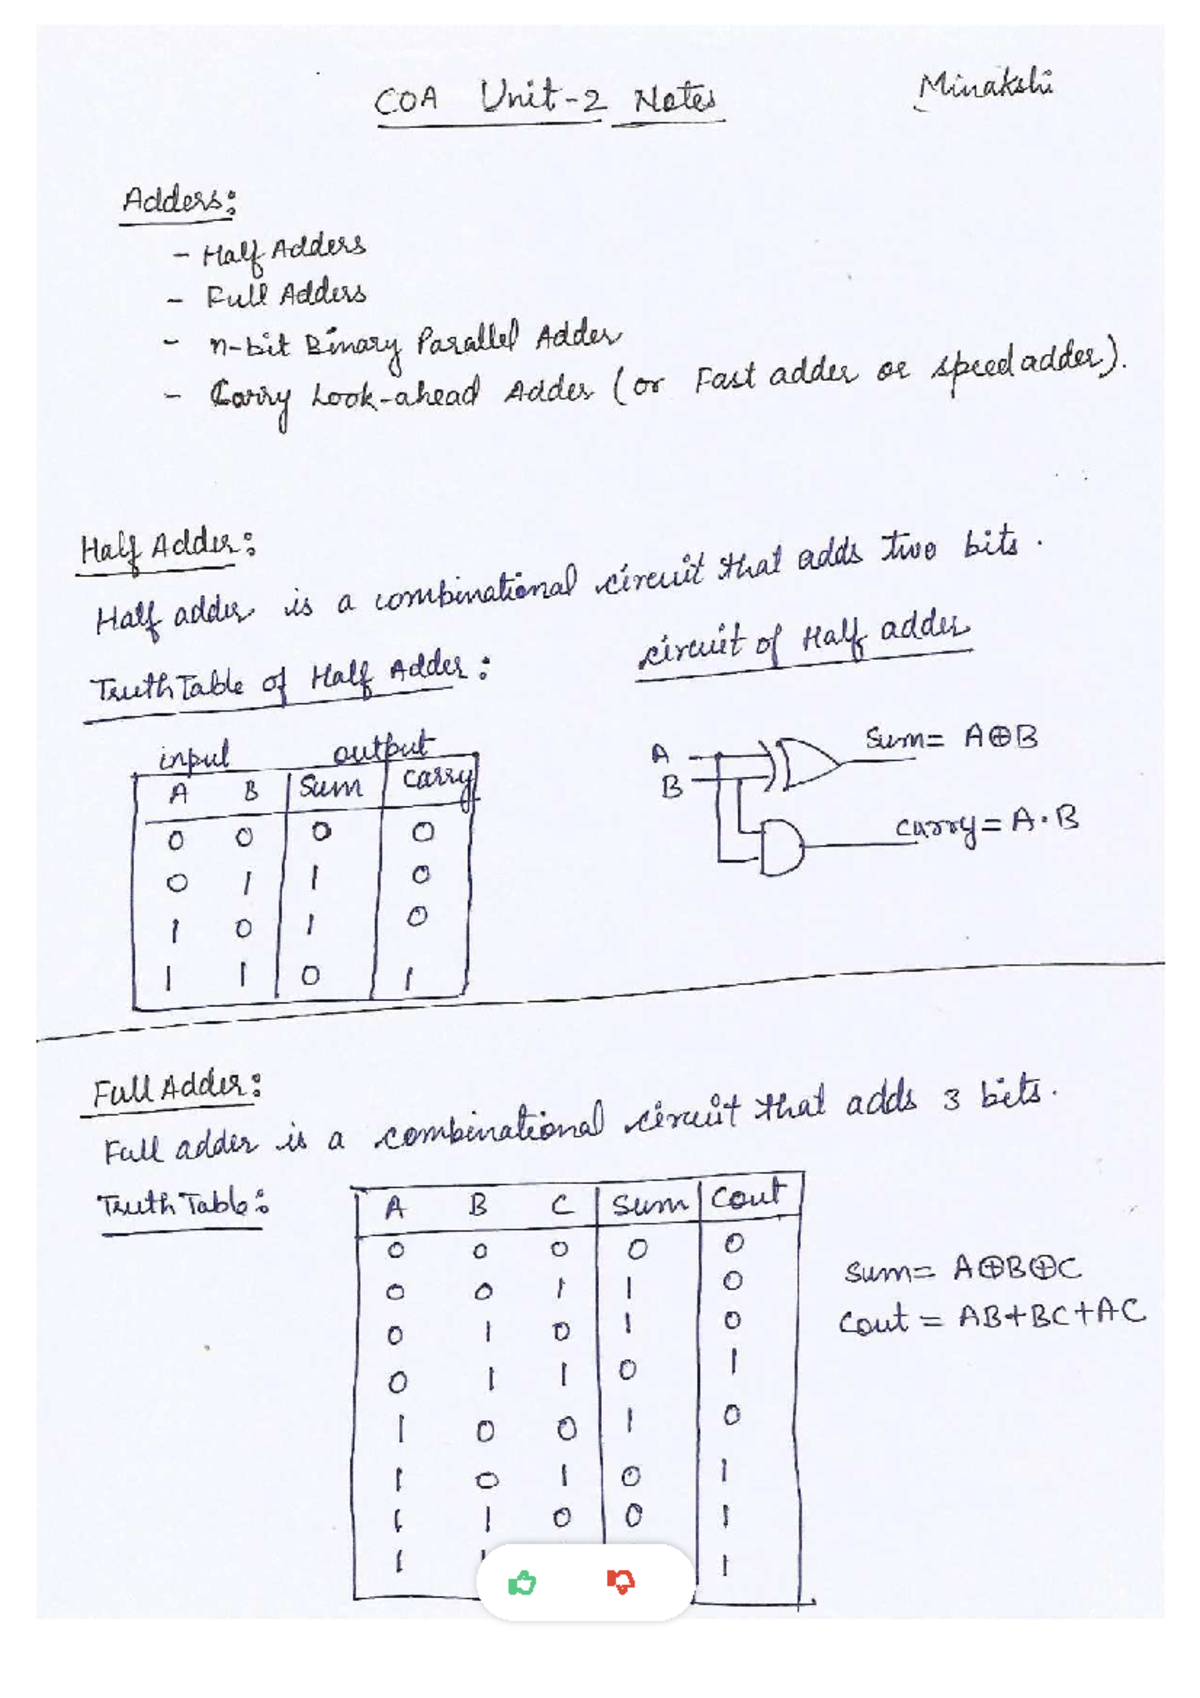 COA Unit-2 Notes
Minakshi
Adders:
- Half Adders
- Full Adders
- n-bit Binary Parallel Adder
- Carry Look-ahead Adder (or Fast adder or speed adder).
Half Adder:
Half adder is a combinational circuit that adds two bits.
Truth Table of Half Adder:
circuit of Half adder
input output
A B Sum carry
0 0 0 0
0 1 1 0
1 0 1 0
1 1 0 1
A
B
Sum= A⊕B
carry= A·B
Full Adder:
Full adder is a combinational circuit that adds 3 bits.
Truth Table:
A B C Sum Cout
0 0 0 0 0
0 0 1 1 0
0 1 0 1 0
0 1 1 0 1
1 0 0 1 0
1 0 1 0 1
1 1 0 0 1
1 1
Sum= A⊕B⊕C
Cout = AB+BC+AC